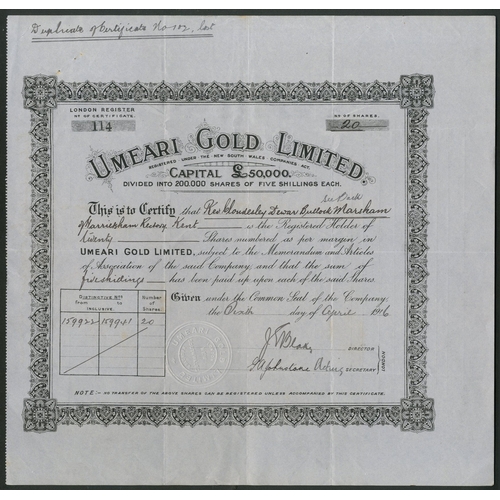 Duplicate of Certificate No 102, lost
LONDON REGISTER
No OF CERTIFICATE.
114
No OF SHARES.
20
UMEARI GOLD LIMITED.
REGISTERED UNDER THE NEW SOUTH WALES COMPANIES ACT.
CAPITAL £50,000.
DIVIDED INTO 200,000 SHARES OF FIVE SHILLINGS EACH.
This is to Certify that Rev Cloudesley Dewar Bullock Marsham
of Harrietsham Rectory Kent is the Registered Holder of
Twenty Shares numbered as per margin in
UMEARI GOLD LIMITED, subject to the Memorandum and Articles
of Association of the said Company and that the sum of
five shillings has been paid up upon each of the said Shares.
Given under the Common Seal of the Company
the Sixth day of April 1906
DISTINCTIVE Nos
from to
INCLUSIVE.
Number
of
Shares
159922 159941 20
DIRECTOR
Johnstone Acting SECRETARY
LONDON
NOTE:- NO TRANSFER OF THE ABOVE SHARES CAN BE REGISTERED UNLESS ACCOMPANIED BY THIS CERTIFICATE.